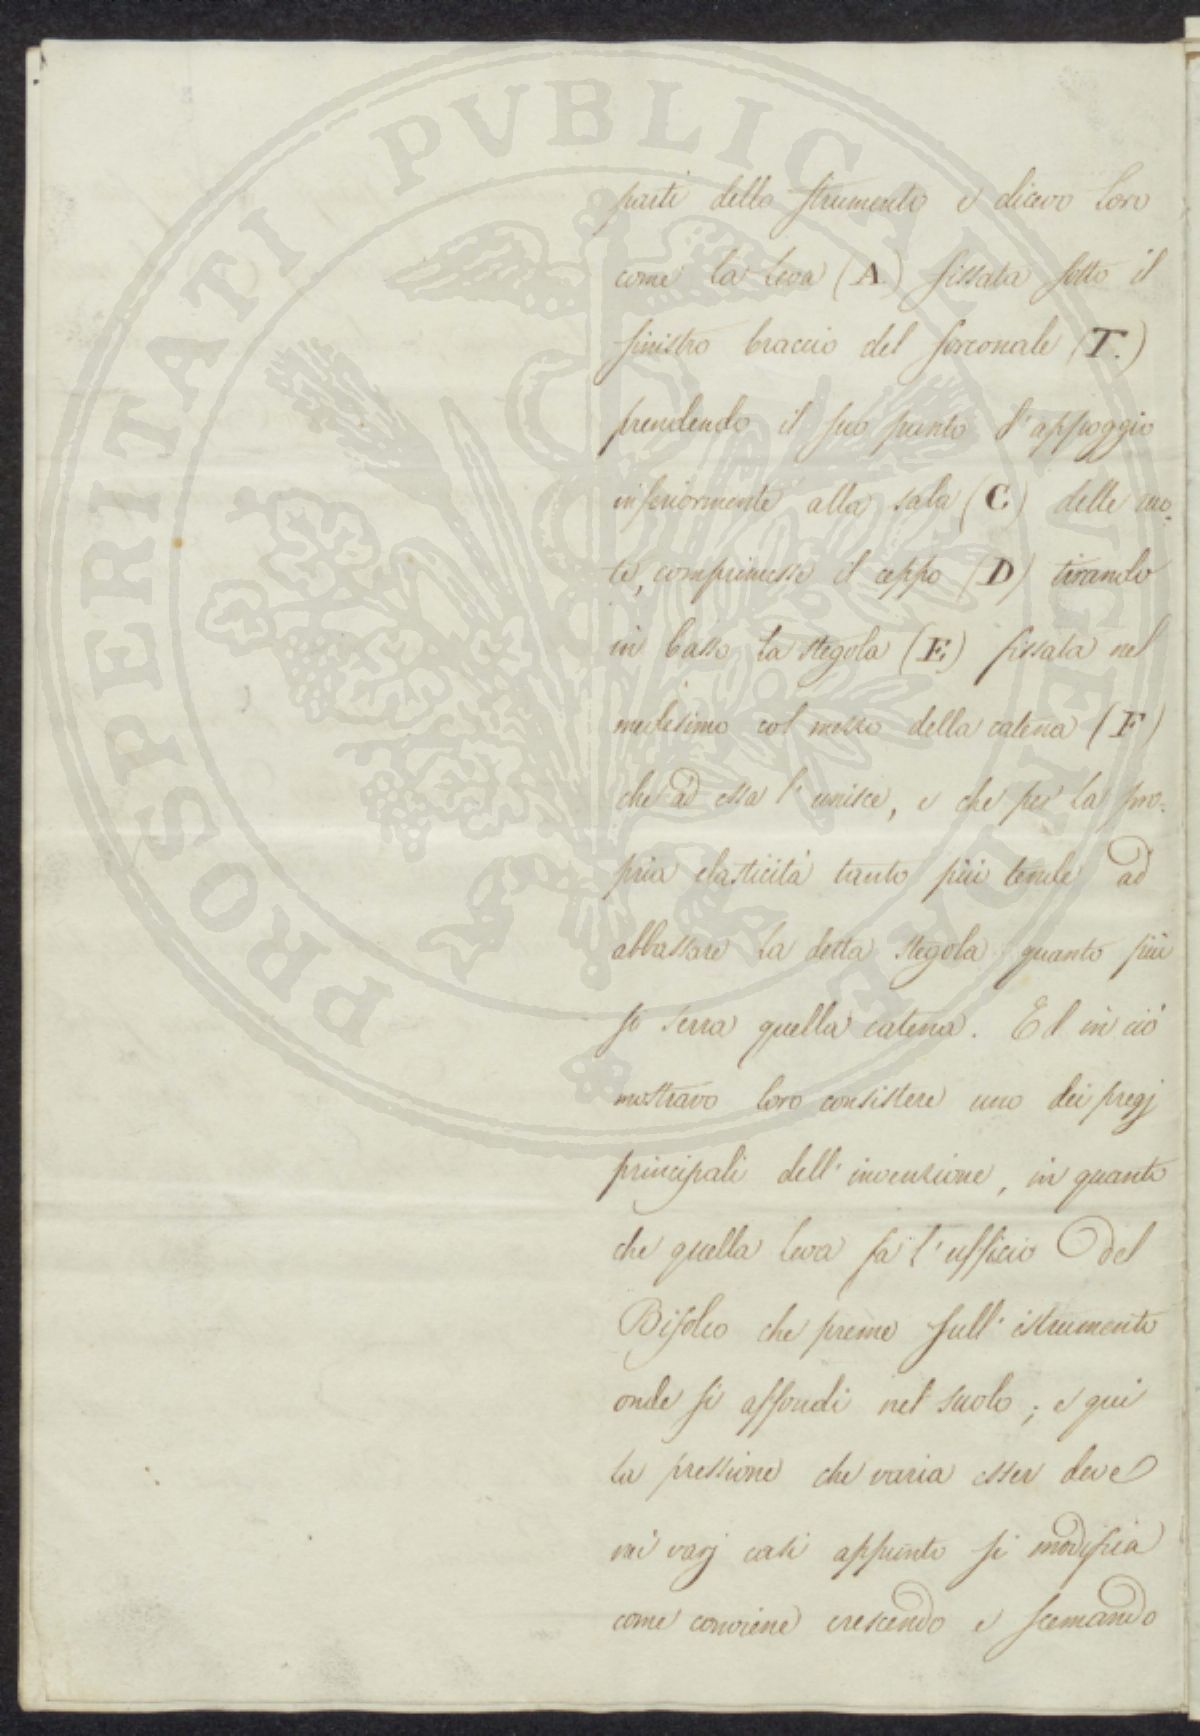 parti dello strumento e dicevo loro
come la leva (A) fissata sotto il
sinistro braccio del forconale (T.)
prendendo il suo punto d'appoggio
inferiormente alla sala (C) delle ruo-
te, comprimesse il ceppo (D) tirando
in basso la stegola (E) fissata nel
medesimo col mezzo della catena (F)
che ad essa l'unisce, e che per la pro-
pria elasticità tanto più tende ad
abbassare la detta stegola quanto più
si serra quella catena. Ed in ciò
mostravo loro consistere uno dei pregj
principali dell'invenzione, in quanto
che quella leva fa l'ufficio del
Bifolco che preme sull'istrumento
onde si affondi nel suolo; e qui
la pressione che varia esser deve
nei varj casi appunto si modifica
come conviene crescendo e scemando
PROSPERITATI PVBLICAE AVGENDAE